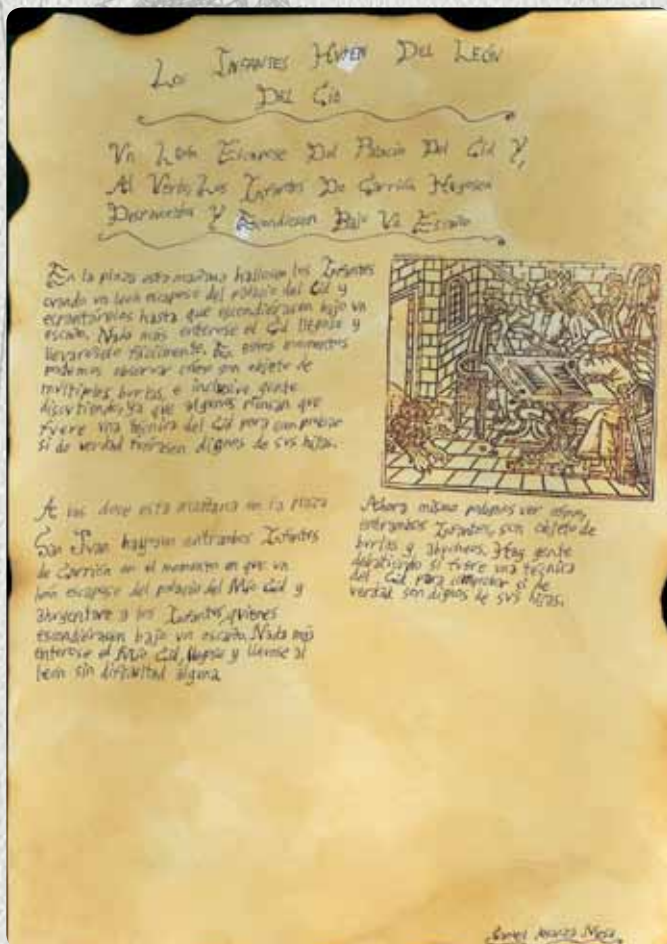 Los Infantes Huyen Del León
Del Cid
Un León Escapose Del Palacio Del Cid Y,
Al Verlo, Los Infantes De Carrión
Y Escondiesen Bajo Un Escaño
En la plaza esta mañana hallosen los Infantes
cuando un león escapose del palacio del Cid y
espantáronlos hasta que escondiéracen bajo un
escaño. Nada más enterose el Cid llegose y
fácilmente. En estos momentos
podemos observar cómo son objeto de
múltiples burlas, e inclusive gente
discutiendo ya que algunos piensan que
fuere una técnica del Cid para comprobar
si de verdad fueresen dignos de sus hijas.
A las doce esta mañana en la plaza
San Juan entrambos Infantes
de Carrión en el momento en que un
león escapose del palacio del Mío Cid y
a los Infantes, quienes
escondiéracen bajo un escaño. Nada más
enterose el Mío Cid, llegose y llevose al
león sin dificultad alguna.
Ahora mismo podemos ver cómo,
entrambos Infantes, son objeto de
burlas y abucheos. Hay gente
debatiendo si fuere una técnica
del Cid para comprobar si de
verdad son dignos de sus hijas.